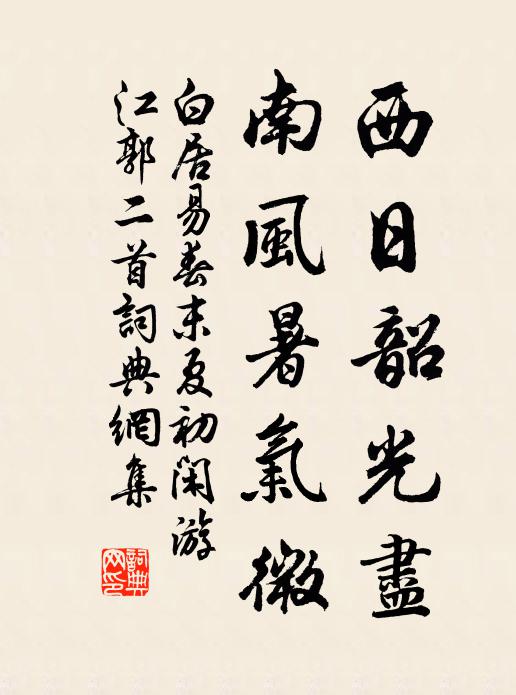 西日韶光盡
南風暑氣微
白居易春末夏初閑游
江郭二首詞典網集
詞典
网印